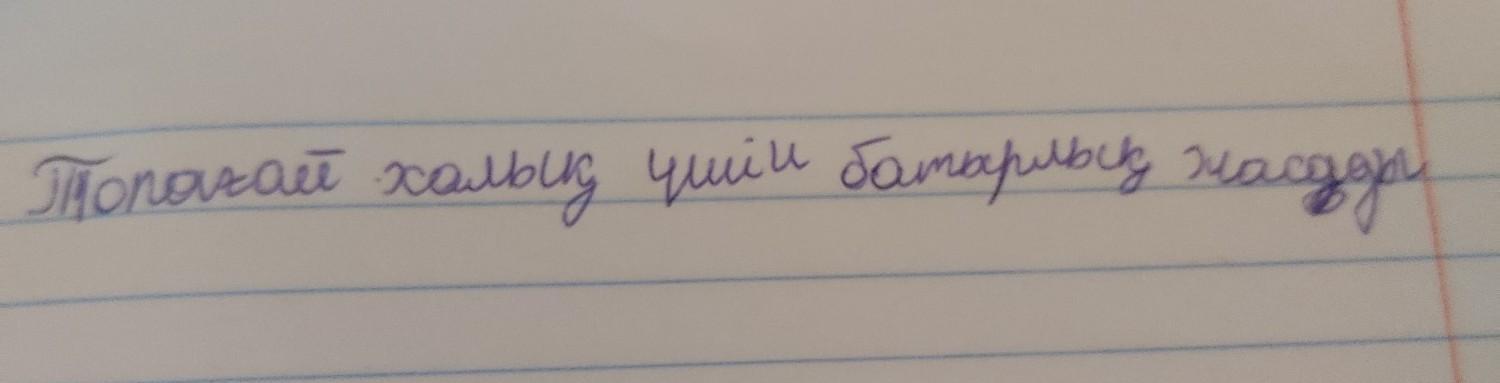 Топағай халық үшін батырлық жасады